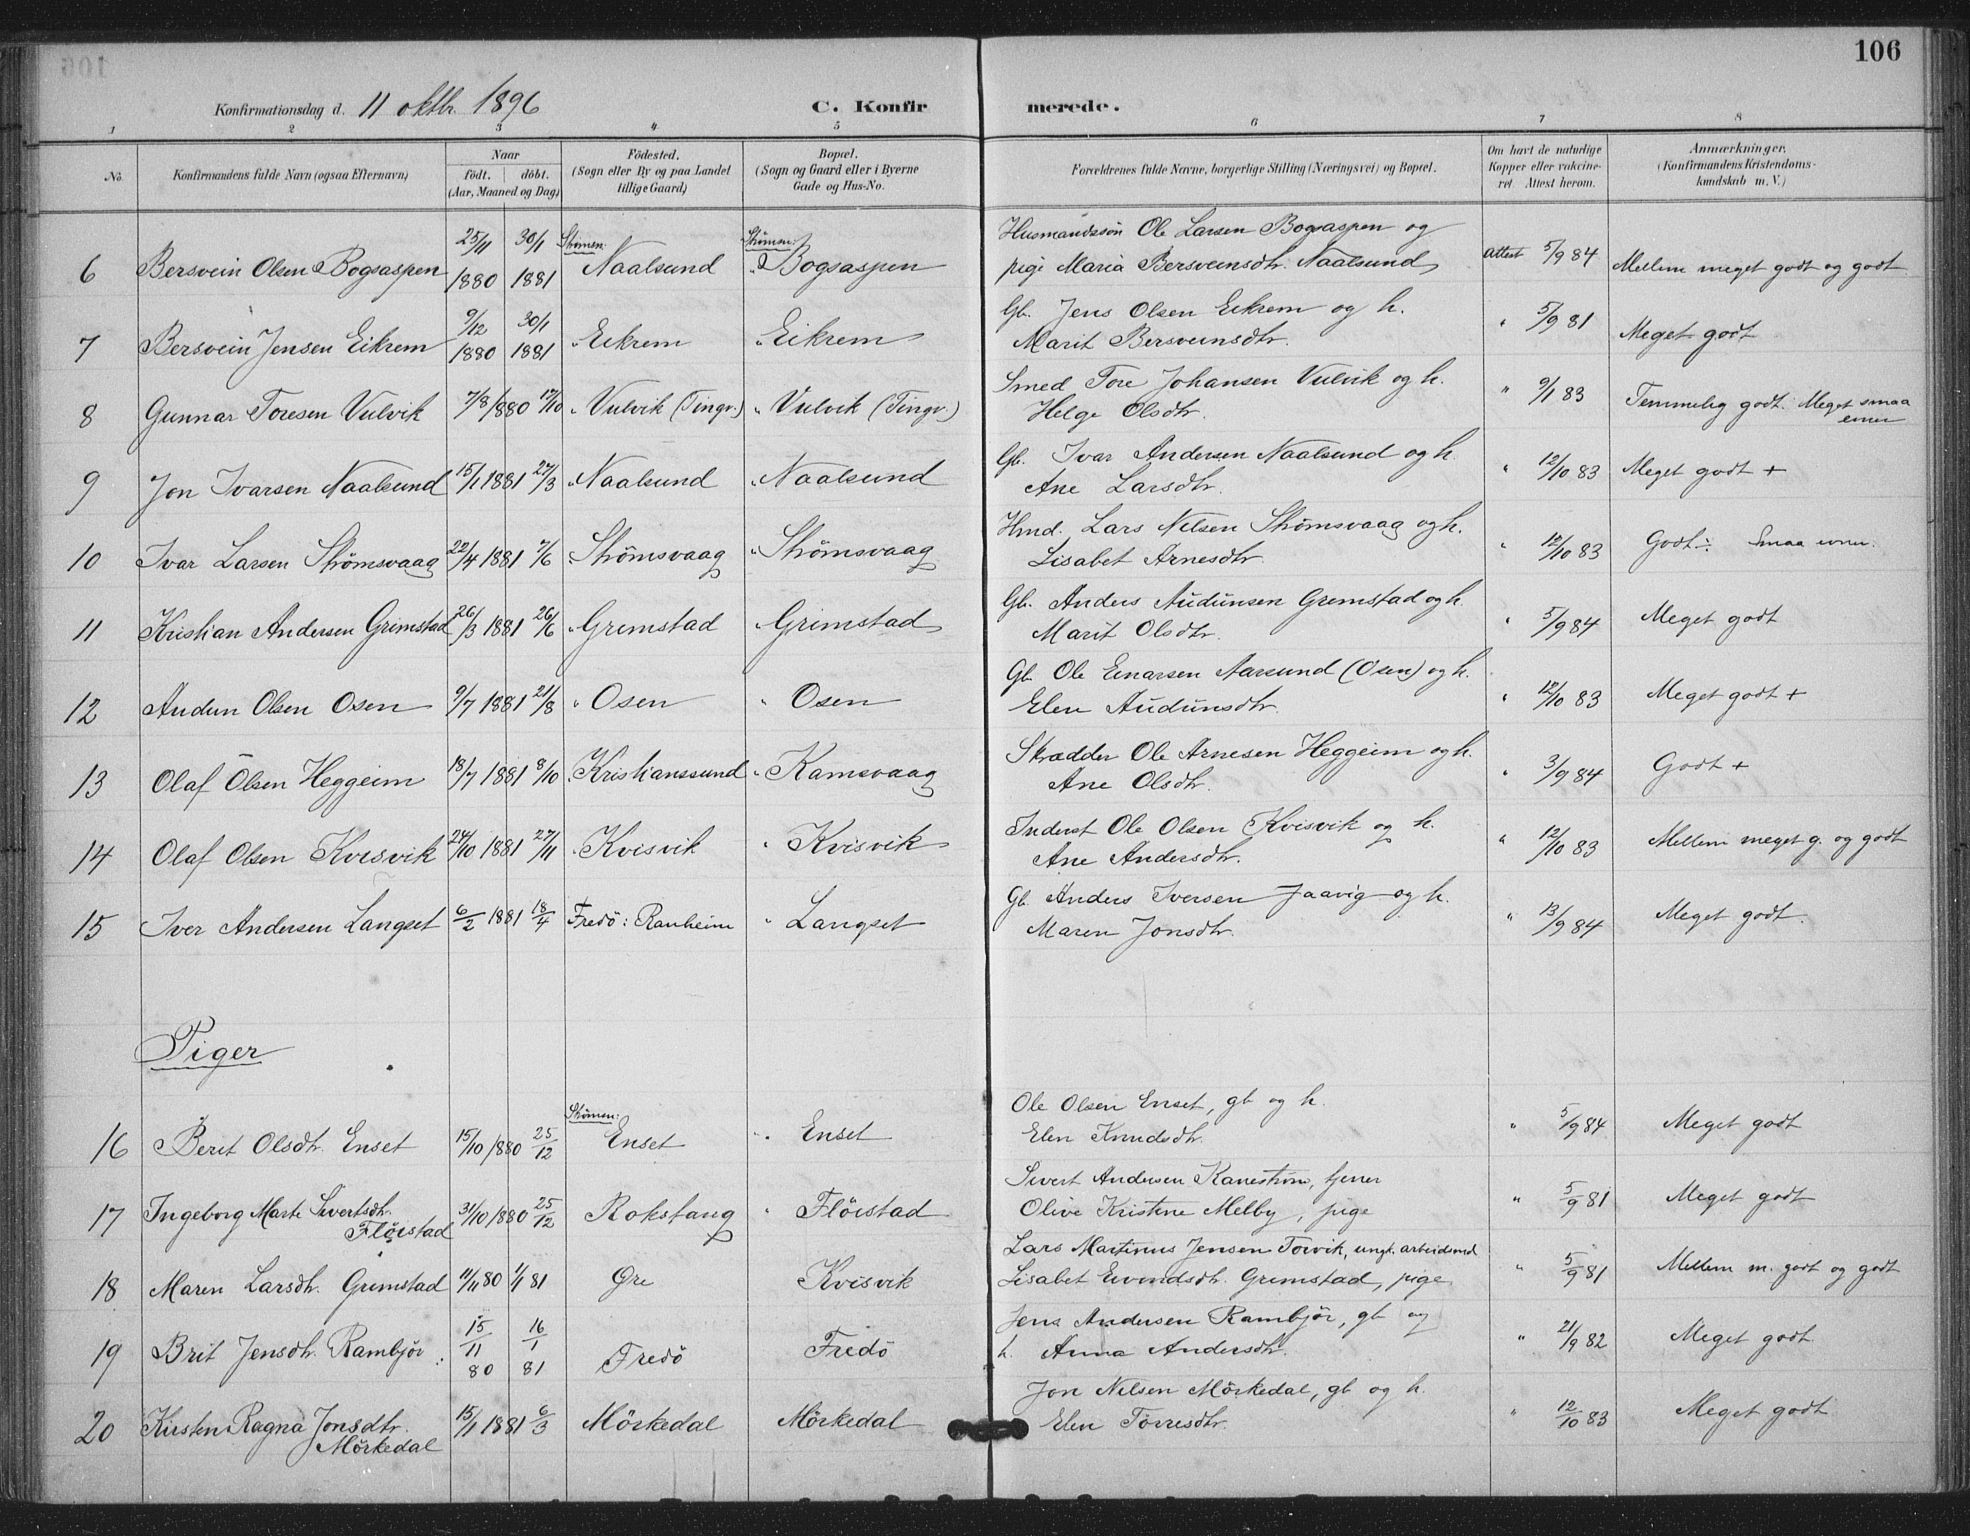 106
Konfirmationsdag d. 11 oktbr. 1896 C. Konfirmerede.
1 2 3 4 5 6 7 8
No. Konfirmandens fulde Navn (ogsaa Efternavn) Naar Födested. Bopæl. Forældrenes fulde Navne, borgerlige Stilling (Næringsvei) og Bopæl. Om havt de naturlige Anmærkninger.
födt. döbt. (Sogn eller By og paa Landet (Sogn og Gaard eller i Byerne Kopper eller vakcine- (Konfirmandens Kristendoms-
(Aar, Maaned og Dag) tillige Gaard) Gade og Hus-No. ret. Attest herom. kundskab m. V.)
25/11 30/1 Strömsn: Strömsn: Husmandssön Ole Larsen Bogsaspen og
6 Bersvein Olsen Bogsaspen 1880 1881 Naalsund Bogsaspen pige Maria Bersveinsdtr. Naalsund Attest 5/9 84 Mellem meget godt og godt
9/12 30/1 Gb. Jens Olsen Eikrem og h.
7 Bersvein Jensen Eikrem 1880 1881 " Eikrem " Eikrem Marit Bersveinsdtr. " 5/9 81 Meget godt
Smed Tore Johansen Vulvik og h.
8 Gunnar Toresen Vulvik 7/8 1880 17/10 " Vulvik (Tingv.) " Vulvik (Tingv.) Helge Olsdtr. " 9/1 83 Temmelig godt. Meget smaa evner
Gb. Ivar Andersen Naalsund og h.
9 Jon Ivarsen Naalsund 15/1 1881 27/3 " Naalsund " Naalsund Ane Larsdtr. " 12/10 83 Meget godt +
Hmd. Lars Nilsen Strömsvaag og h.
10 Ivar Larsen Strömsvaag 22/4 1881 7/6 " Strömsvaag " Strömsvaag Lisabet Arnesdtr. " 12/10 83 Godt ÷ Smaa evner.
Gb. Anders Audunsen Grimstad og h.
11 Kristian Andersen Grimstad 26/3 1881 26/6 " Grimstad " Grimstad Marit Olsdtr. " 5/9 84 Meget godt
Gb. Ole Einarsen Aarsund (Osen) og h.
12 Audun Olsen Osen 9/7 1881 21/8 " Osen " Osen Elen Audunsdtr. " 12/10 83 Meget godt +
Skrædder Ole Arnesen Heggeim og h.
13 Olaf Olsen Heggeim 18/7 1881 8/10 " Kristianssund " Kamsvaag Ane Olsdtr. " 3/9 84 Godt +
Inderst Ole Olsen Kvisvik og h.
14 Olaf Olsen Kvisvik 24/10 1881 27/11 " Kvisvik " Kvisvik Ane Andersdtr. " 12/10 83 Mellem meget g. og godt
Gb. Anders Iversen Jaavig og h.
15 Iver Andersen Langset 6/2 1881 18/4 Fredö: Ranheim " Langset Maren Jonsdtr. " 13/9 84 Meget godt.
Piger
Strömsn: Ole Olsen Enset, gb og h.
16 Berit Olsdtr. Enset 15/10 1880 25/12 Enset " Enset Elen Knudsdtr. " 5/9 84 Meget godt
Sivert Andersen Kanestrøm, tjener
17 Ingeborg Marte Sivertsdtr. 31/10 1880 25/12 Rokstang " Flöistad Olive Kristine Melby, pige " 5/9 81 Meget godt
Flöistad
Lars Martinus Jensen Torvik, ungk. arbeidsmd
18 Maren Larsdtr. Grimstad 11/11 80 1/1 81 Øre Kvisvik Lisabet Eivindsdtr. Grimstad, pige " 5/9 81 Mellem m. godt og godt
15/11 16/1 Jens Andersen Rambjör, gb og
19 Brit Jensdtr. Rambjör 80 81 Fredö Fredö h. Anna Andersdtr. " 21/9 82 Meget godt
Jon Nilsen Mörkedal, gb og h.
20 Kirsten Ragna Jonsdtr. 15/1 1881 6/3 Mörkedal Mörkedal Elen Torresdtr. " 12/10 83 Meget godt
Mörkedal